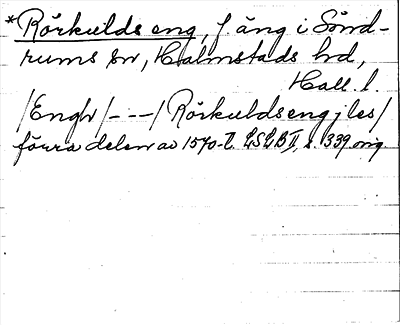 *Rörkulds eng, f. äng i Sönd-
rums sn, Halmstads hd,
Hall. l.
/Engh/---/Rörkuldseng jles/
förra delen av 1570-t. LSLB II, s. 339 orig.